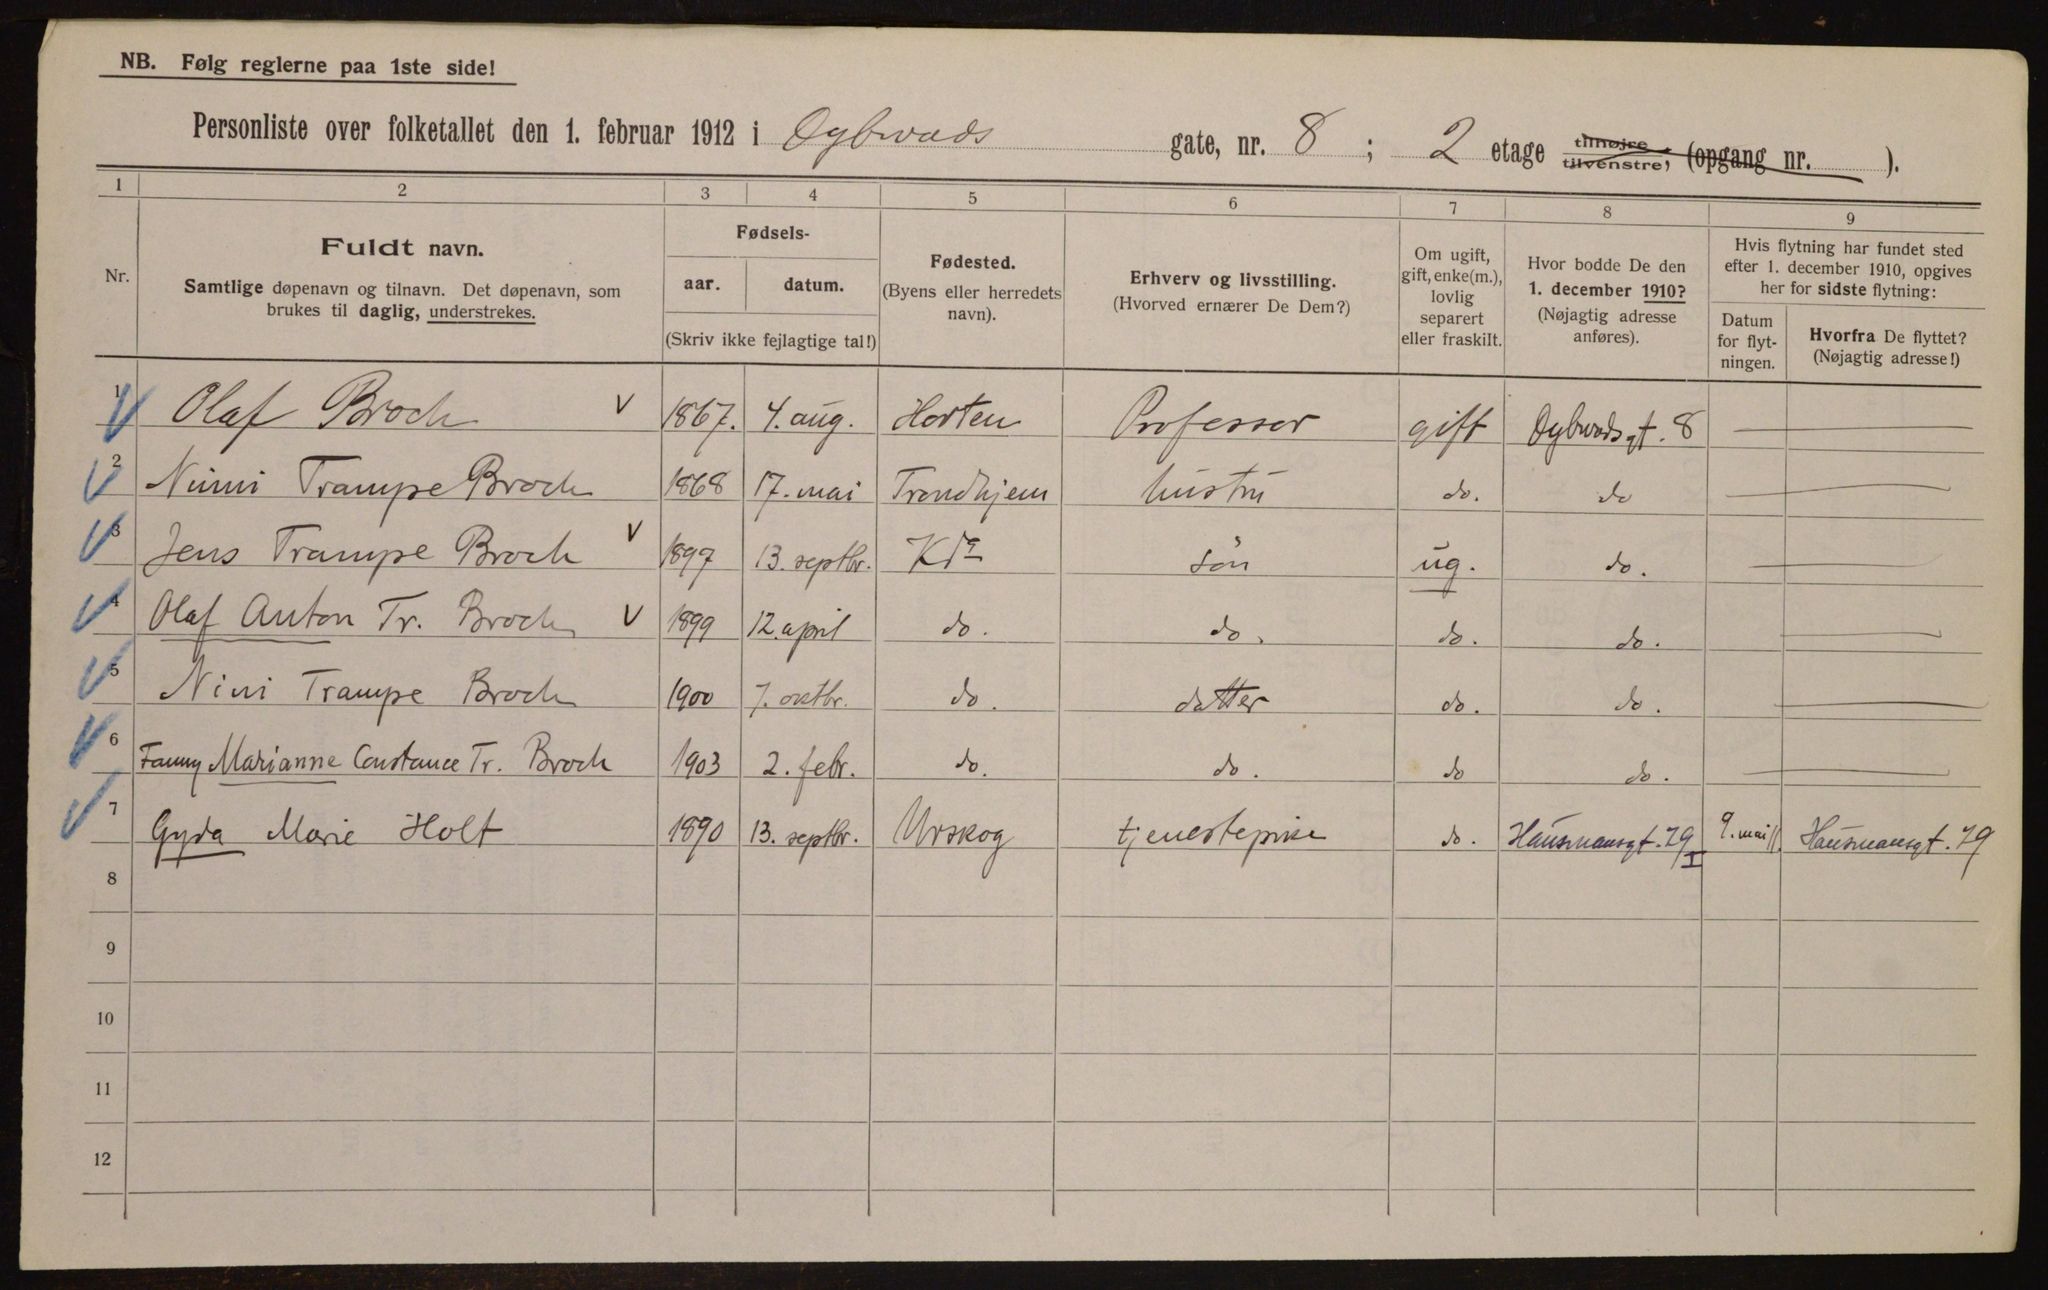 NB. Følg reglerne paa 1ste side!
Personliste over folketallet den 1. februar 1912 i Dybwads gate, nr. 8 ; 2 etage tilhøjre tilvenstre, (opgang nr. ).
1 2 3 4 5 6 7 8 9
Nr.
Fuldt navn.
Samtlige døpenavn og tilnavn. Det døpenavn, som
brukes til daglig, understrekes.
Fødsels-
aar. datum.
(Skriv ikke fejlagtige tal!)
Fødested.
(Byens eller herredets
navn).
Erhverv og livsstilling.
(Hvorved ernærer De Dem?)
Om ugift,
gift, enke(m.),
lovlig
separert
eller fraskilt.
Hvor bodde De den
1. december 1910?
(Nøjagtig adresse
anføres).
Hvis flytning har fundet sted
efter 1. december 1910, opgives
her for sidste flytning:
Datum
for flyt-
ningen.
Hvorfra De flyttet?
(Nøjagtig adresse!)
1 Olaf Broch V 1867. 4. aug. Horten Professor gift Dybwadsgt. 8
2 Nimi Trampe Broch 1868 17. mai Trondhjem hustru do. do
3 Jens Trampe Broch V 1897 13. septbr. Kra søn ug. do.
4 Olaf Anton Tr. Broch V 1899 12. april do. do. do. do.
5 Nini Trampe Broch 1900 7. oktbr. do. datter do. do.
6 Fanny Marianne Constance Tr. Broch 1903 2. febr. do. do. do do.
7 Gyda Marie Holt 1890 13. septbr. Urskog tjenestepike do. Hausmansgt. 29 I 9. mai 11. Hausmansgt. 29
8
9
10
11
12